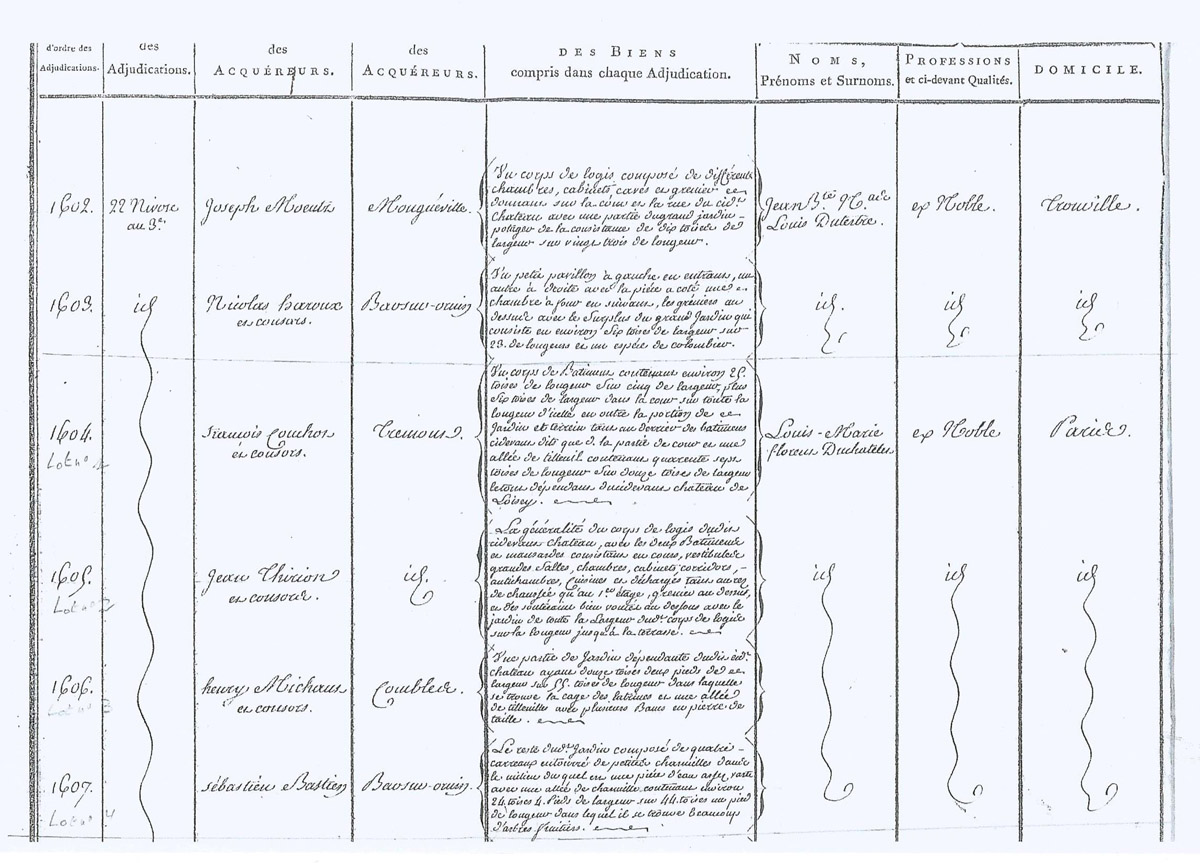 d'ordre des
Adjudications.
des
Adjudications.
des
Acquéreurs.
des
Acquéreurs.
des Biens
compris dans chaque Adjudication.
Noms,
Prénoms et Surnoms.
Professions
et ci-devant Qualités.
Domicile.
1602.
22 Nivose
au 3e.
Joseph
Mouguéville.
Un corps de logis composé de différents
chambres, cabinets caves et grenier et
donnant sur la cour et la rue du cidt.
Chateau avec une partie du grand jardin
potager de la consistance de dix toises de
largeur sur vingt trois de longeur.
Jean Bte. M.
Louis Dutertre.
ex Noble.
Trouville.
1603.
id
Nicolas haroux
et consors.
Bar-sur-ornin
Un petit pavillon à gauche en entrant, un
autre à droite avec la pièce a coté une
chambre à four en suivant, les greniers au
dessus avec le surplus du grand Jardin qui
consiste en environ dix toises de largeur sur
23. de longeur et un espèce de colombier.
id.
id
id
1604.
Lot no 1
francois Couchot
et consors.
Tremont.
Un corps de Batiment contenant environ 25.
toises de longeur sur cinq de largeur, plus
six toises de largeur dans la cour sur toute la
longeur d'icelle en outre la portion de
Jardin et terrein tant au derrier des batimens
cidevant dits que de la partie de cour et une
allée de tilleuil contenant quarente sept
toises de longeur sur douze toises de largeur
le tout dépendant du cidevant chateau de
Loisey.
Louis-Marie
florent Duchatelet
ex Noble
Paris.
1605.
Lot no 2
Jean Thirion
et consors.
id.
La généralité du corps de logis dudit
cidevant chateau, avec les deux Batimens
en mansardes consistant en cours, vestibules
grandes Salles, chambres, cabinets, corridors,
antichambres, Cuisines et décharges tant au rez
de chaussée qu'au 1er étage, grenier au dessus,
et des souterains bien voutés au dessous avec le
jardin de toute la Largeur dudt. corps de logis
sur la longeur jusqu'à la terrasse.
id
id
id
1606.
Lot no 3
henry Michaux
et consors.
Combles.
Une partie de Jardin dépendante dudit cidt.
Chateau ayant douze toises deux pieds de
largeur sur 55. toises de longeur dans laquelle
se trouve la cage des latrines et une allée
de tilleuille avec plusieurs Bancs en pierre de
taille.
1607.
Lot no 4
sébastien Bastien
Bar-sur-ornin.
Le reste dudt. Jardin composé de quatre
carreaux entourré de petites charmilles dans
le milieu du quel est une pièce d'eau assez vaste
avec une allée de charmille contenant environ
24. toises 4. Pieds de largeur sur 44. toises un pied
de longeur dans lequel il se trouve beaucoup
d'arbres fruitiers.